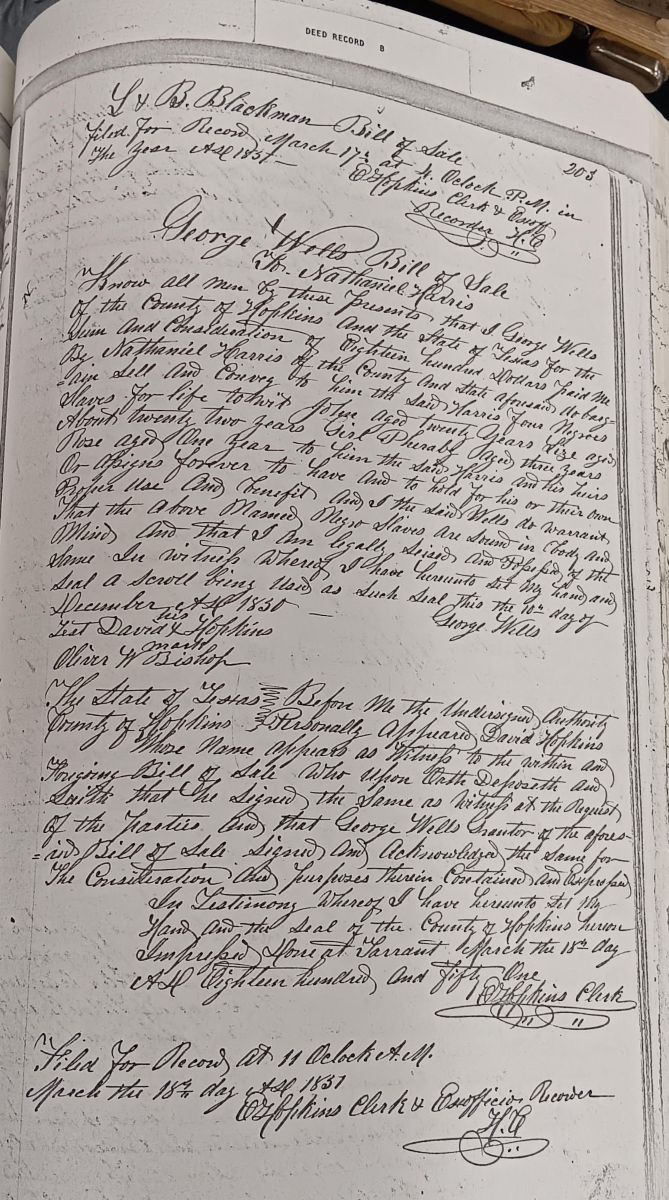 DEED RECORD B
203
L & B. Blackman Bill of Sale
Filed For Record March 17th at 4 Oclock P.M. in
The Year AD 1851
E Hopkins Clerk & Exoff
Recorder H.C
George Wells Bill of Sale
To Nathaniel Harris
Know all men by these Presents that I George Wells
Of the County of Hopkins And the State of Texas for the
Sum And Consideration of Eighteen hundred Dollars Paid me
By Nathaniel Harris of the County And State aforesaid do barg-
=ain Sell And Convey to him the Said Harris Four Negroes
Slaves for life towit aged twenty Years Lize aged
About twenty two years Girl Pheraby Aged three years
Rose aged One Year to him the Said Harris and his heirs
Or Assigns forever to have And to hold for his or their Own
Proper Use And benefit And I the Said Wells do Warrant
That the Above Named Negro Slaves are Sound in body And
Mind And that I Am legally Seised And Possessed of the
Same In witness Whereof I have hereunto Set my hand and
Seal a Scroll being Used as Such Seal this the 10th day of
December AD 1850 George Wells
his
Test David X Hopkins
mark
Oliver W Bishop
The State of Texas Before Me the Undersigned Authority
County of Hopkins Personally Appeared David Hopkins
Whose Name appears as Witness to the within and
Foregoing Bill of Sale Who Upon Oath Deposeth and
Saith that he Signed the Same as Witness at the Request
Of the Parties And that George Wells Grantor of the afores-
=aid Bill of Sale Signed And Acknowledged the Same for
The Consideration And purposes therein Contained And Expressed
In Testimony Whereof I have hereunto Set My
Hand And the Seal of the County of Hopkins hereon
Impressed Done at Tarrant March the 18th day
AD Eighteen hundred And Fifty One
E Hopkins Clerk
Filed For Record At 11 Oclock A.M.
March the 18th day AD 1851
E Hopkins Clerk & Exofficio Recorder
H.C